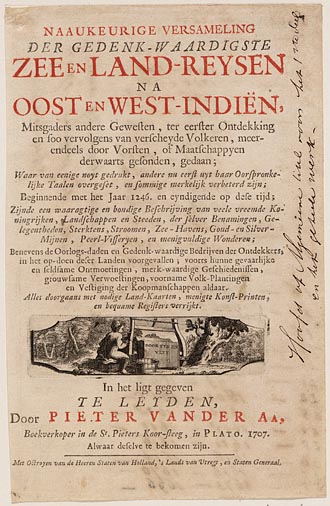 NAAUKEURIGE VERSAMELING
DER GEDENK-WAARDIGSTE
ZEE EN LAND-REYSEN
NA
OOST EN WEST-INDIËN,
Mitsgaders andere Gewesten, ter eerster Ontdekking
en soo vervolgens van verscheyde Volkeren, meer-
endeels door Vorsten, of Maatschappyen
derwaarts gesonden, gedaan;
Waar van eenige noyt gedrukt, andere nu eerst uyt haar Oorspronke-
lijke Taalen overgeset, en sommige merkelijk verbeterd zijn;
Beginnende met het Jaar 1246. en eyndigende op dese tijd;
Zijnde een waaragtige en bondige Beschrijving van veele vreemde Ko-
ningrijken, Landschappen en Steeden, der selver Benamingen, Ge-
legentheden, Sterktens, Stroomen, Zee-Havens, Goud- en Silver-
Mijnen, Peerl-Visseryen, en menigvuldige Wonderen;
Benevens de Oorlogs-daden en Gedenk-waardige Bedrijven der Ontdekkers,
in het op-doen deser Landen voorgevallen; voorts hunne gevaarlijke
en seldsame Ontmoetingen, merk-waardige Geschiedenissen,
grouwsame Verwoestingen, voorname Volk-Plantingen
en Vestiging der Koopmanschappen aldaar.
Alles doorgaans met nodige Land-Kaarten, menigte Konst-Printen,
en bequame Registers verrijkt.
In het ligt gegeven
TE LEYDEN,
Door PIETER VANDER AA,
Boekverkoper in de St. Pieters Koor-steeg, in PLATO. 1707.
Alwaar deselve te bekomen zijn.
Met Octroyen van de Heeren Staten van Holland, 's Lands van Utregt, en Staten Generaal.
algemeene titel voor het 1e deel
en het geheele werk.